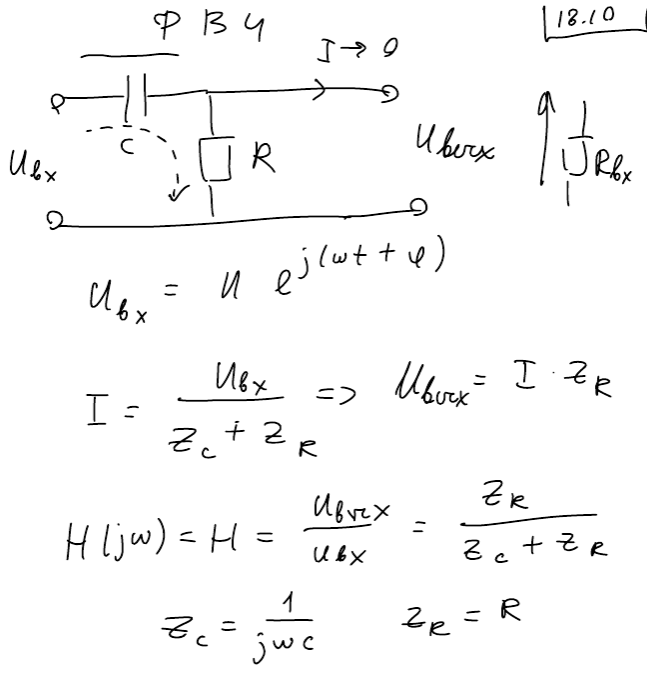 ФВЧ
18.10
I → 0
C
R
Uвх
Uвых
Rвх
Uвх = U e^{j(ωt + φ)}
I = Uвх / (Z_C + Z_R) => Uвых = I · Z_R
H(jω) = H = Uвых / Uвх = Z_R / (Z_C + Z_R)
Z_C = 1 / (jωC) Z_R = R